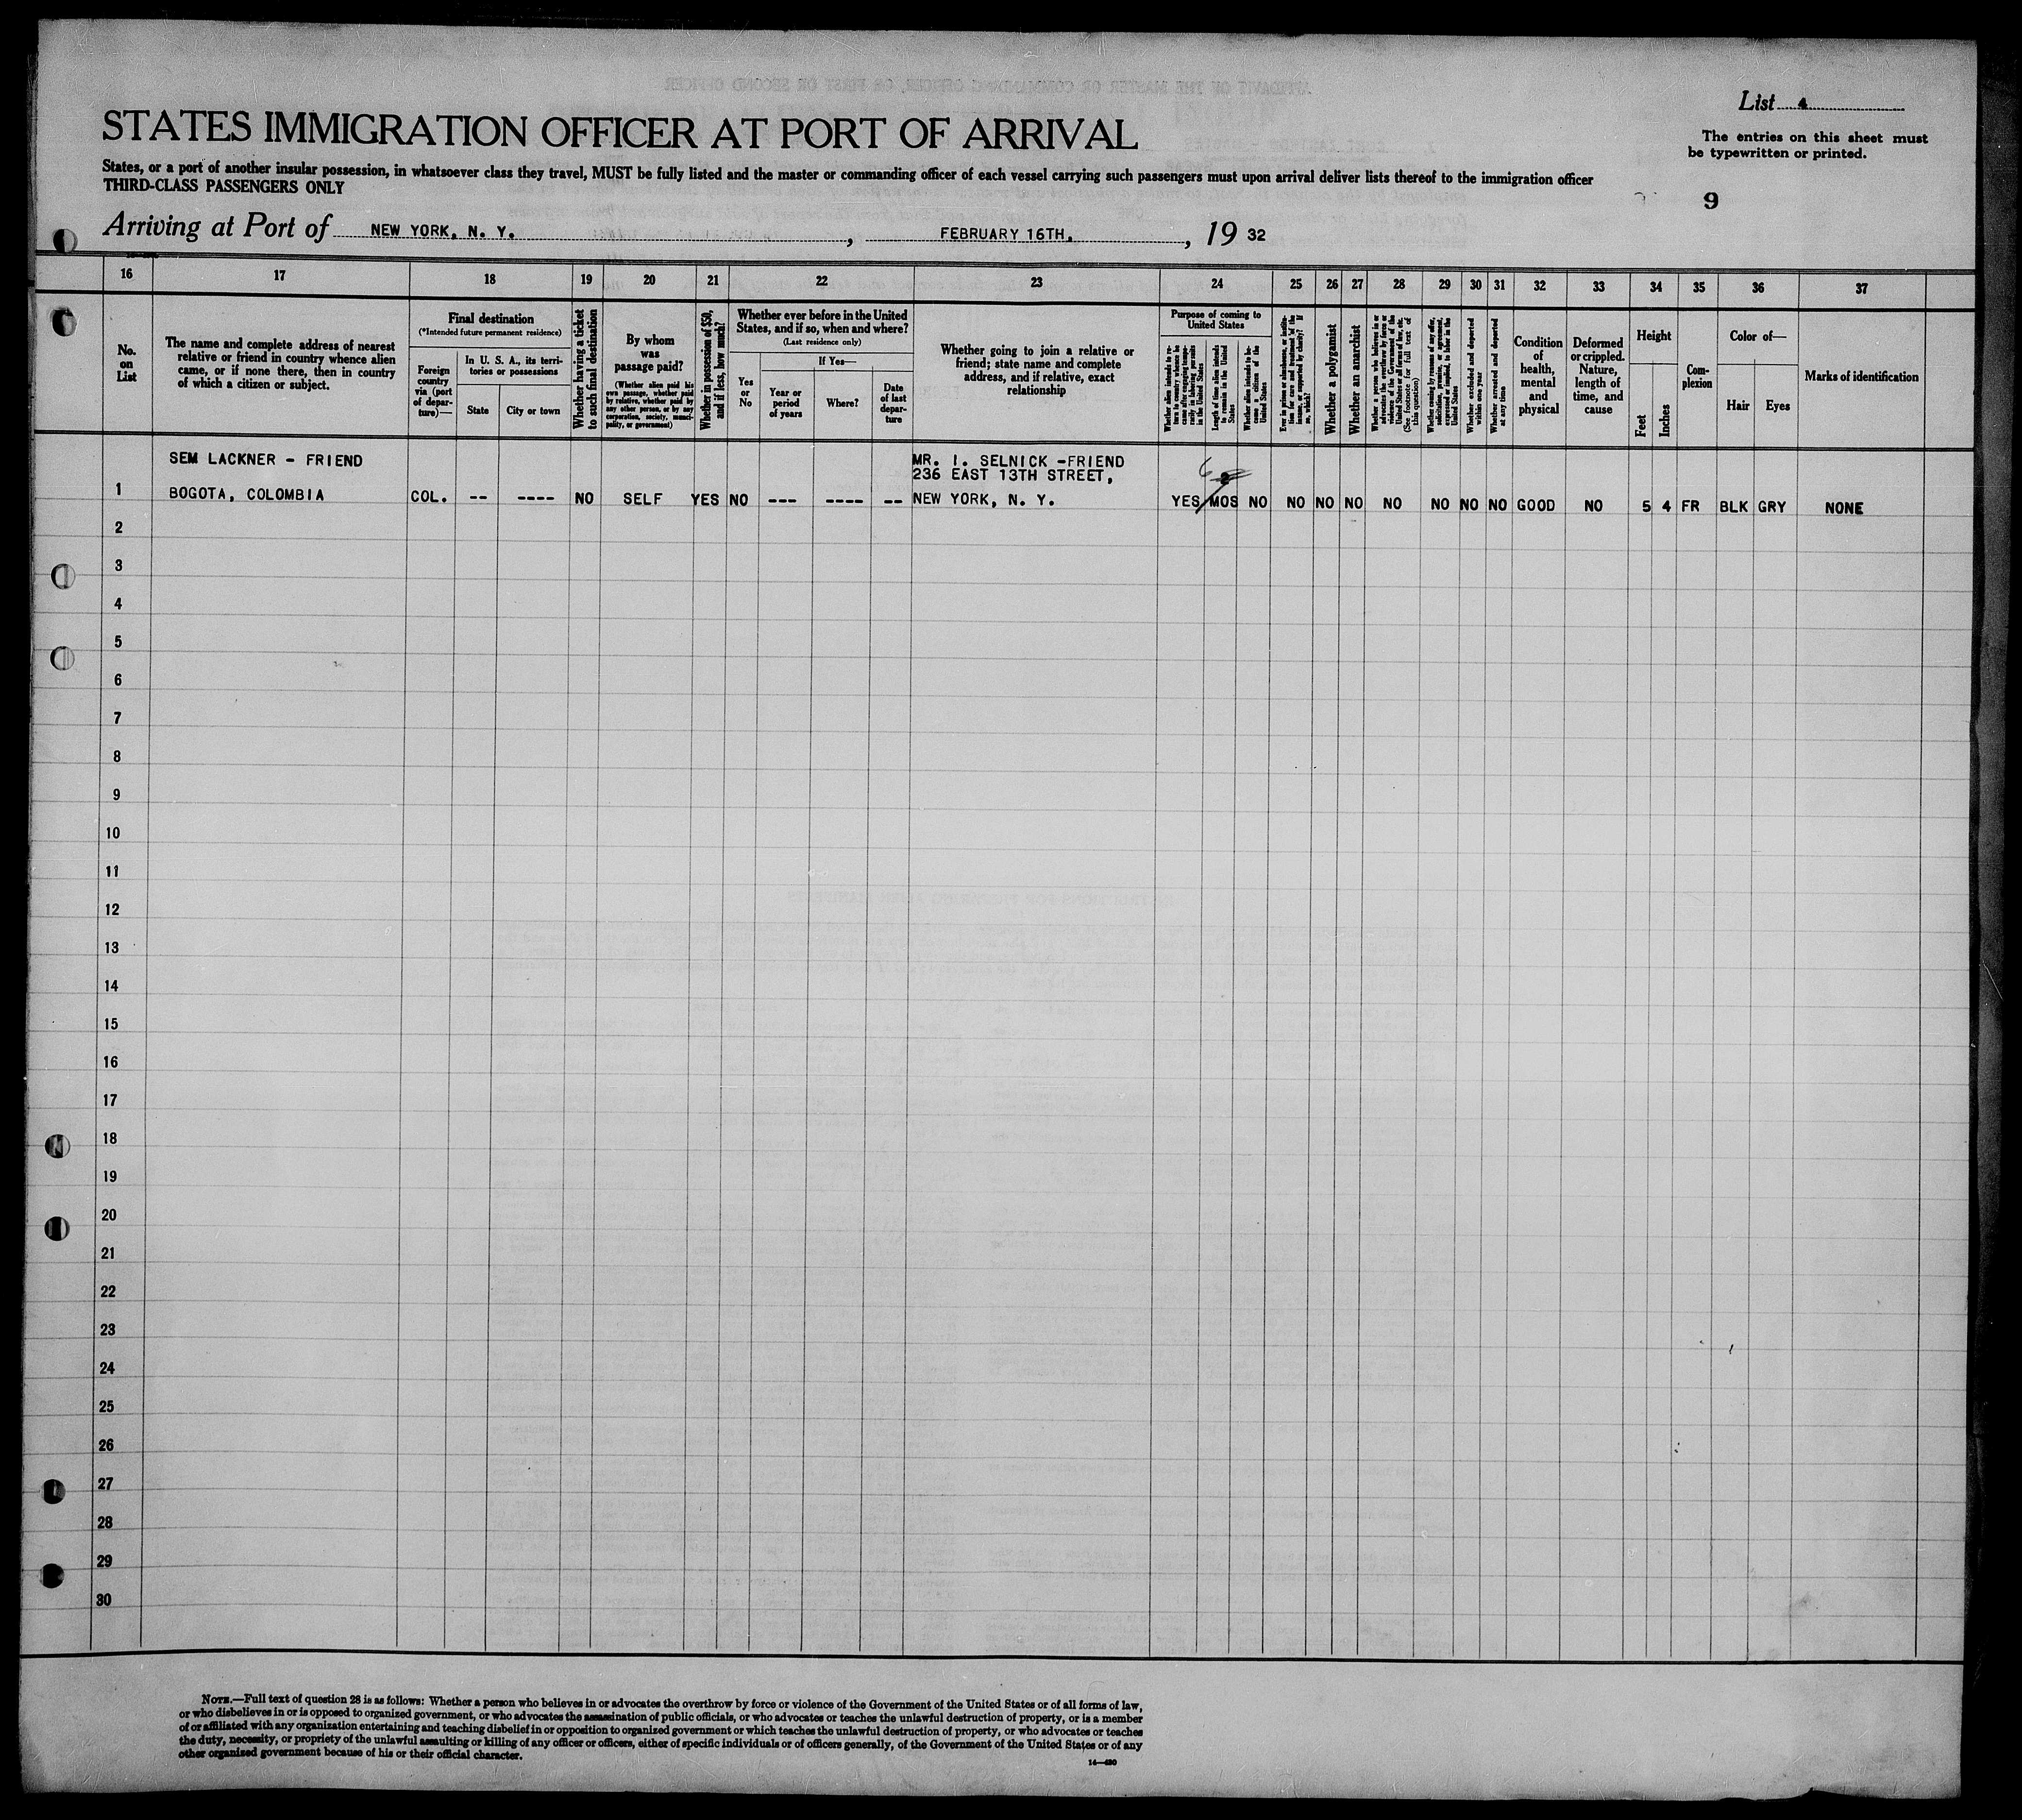 List 4
STATES IMMIGRATION OFFICER AT PORT OF ARRIVAL
The entries on this sheet must
be typewritten or printed.
States, or a port of another insular possession, in whatsoever class they travel, MUST be fully listed and the master or commanding officer of each vessel carrying such passengers must upon arrival deliver lists thereof to the immigration officer
THIRD-CLASS PASSENGERS ONLY
9
Arriving at Port of NEW YORK, N. Y., FEBRUARY 16TH, 19 32
16 17 18 19 20 21 22 23 24 25 26 27 28 29 30 31 32 33 34 35 36 37
No.
on
List
The name and complete address of nearest
relative or friend in country whence alien
came, or if none there, then in country
of which a citizen or subject.
Final destination
(*Intended future permanent residence)
Foreign
country
via (port
of depar-
ture)—
In U. S. A., its terri-
tories or possessions
State
City or town
Whether having a ticket
to such final destination
By whom
was
passage paid?
(Whether alien paid his
own passage, whether paid
by relative, whether paid by
any other person, or by any
corporation, society, munici-
pality, or government)
Whether in possession of $50,
and if less, how much?
Whether ever before in the United
States, and if so, when and where?
(Last residence only)
Yes
or
No
If Yes—
Year or
period
of years
Where?
Date
of last
depar-
ture
Whether going to join a relative or
friend; state name and complete
address, and if relative, exact
relationship
Purpose of coming to
United States
Whether alien intends to re-
turn to country whence he
came after engaging tempo-
rarily in laboring pursuits
in the United States
Length of time alien intends
to remain in the United
States
Whether alien intends to be-
come a citizen of the
United States
Ever in prison or almshouse, or institu-
tion for care and treatment of the
insane, or supported by charity? If
so, which?
Whether a polygamist
Whether an anarchist
Whether a person who believes in or
advocates the overthrow by force or
violence of the Government of the
United States or all forms of law, etc.
(See footnote for full text of
this question)
Whether coming by reasons of any offer,
solicitation, promise, or agreement,
expressed or implied, to labor in the
United States
Whether excluded and deported
within one year
Whether arrested and deported
at any time
Condition
of
health,
mental
and
physical
Deformed
or crippled.
Nature,
length of
time, and
cause
Height
Feet
Inches
Com-
plexion
Color of—
Hair
Eyes
Marks of identification
SEM LACKNER - FRIEND MR. I. SELNICK -FRIEND
236 EAST 13TH STREET, 6
1 BOGOTA, COLOMBIA COL. -- ---- NO SELF YES NO --- ---- -- NEW YORK, N. Y. YES MOS NO NO NO NO NO NO NO NO GOOD NO 5 4 FR BLK GRY NONE
2
3
4
5
6
7
8
9
10
11
12
13
14
15
16
17
18
19
20
21
22
23
24
25
26
27
28
29
30
NOTE.—Full text of question 28 is as follows: Whether a person who believes in or advocates the overthrow by force or violence of the Government of the United States or of all forms of law,
or who disbelieves in or is opposed to organized government, or who advocates the assassination of public officials, or who advocates or teaches the unlawful destruction of property, or is a member
of or affiliated with any organization entertaining and teaching disbelief in or opposition to organized government or which teaches the unlawful destruction of property, or who advocates or teaches
the duty, necessity, or propriety of the unlawful assaulting or killing of any officer or officers, either of specific individuals or of officers generally, of the Government of the United States or of any
other organized government because of his or their official character.